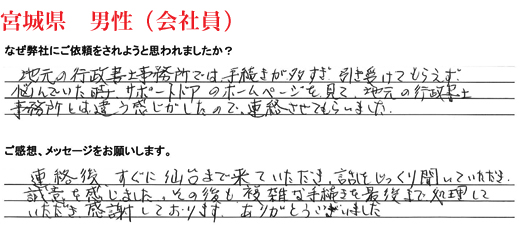 宮城県 男性（会社員）
なぜ弊社にご依頼をされようと思われましたか？
地元の行政書士事務所では、手続きが多すぎ 引き受けてもらえず
悩んでいた時、サポートドアのホームページを見て、地元の行政書士
事務所とは違う感じがしたので、連絡させてもらいました。
ご感想、メッセージをお願いします。
連絡後、すぐに仙台まで来ていただき、話をじっくり聞いていただき、
誠意を感じました。その後も複雑な手続きを最後まで処理して
いただき、感謝しております。ありがとうございました